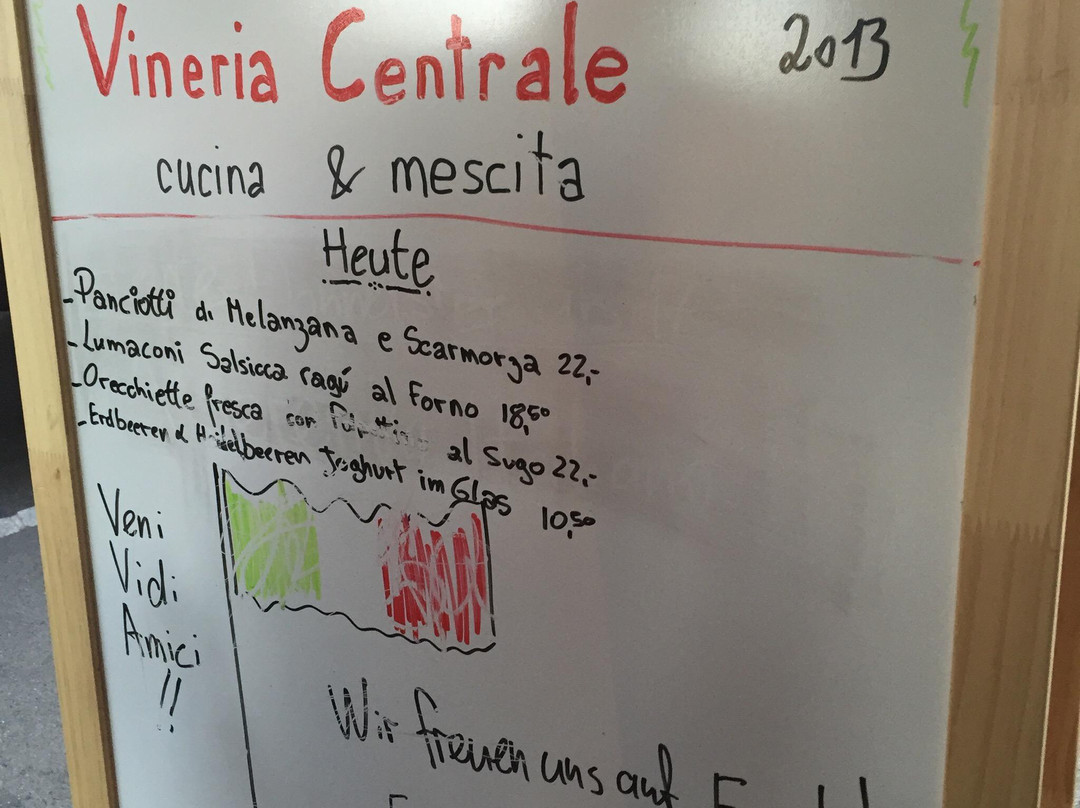 Vineria Centrale 2013
cucina & mescita
Heute
-Panciotti di Melanzana e Scarmorza 22,-
-Lumaconi Salsicca ragú al Forno 18,50
-Orecchiette fresca con al Sugo 22,-
-Erdbeeren & Heidelbeeren Joghurt im Glas 10,50
Veni
Vidi
Amici
!!
Wir freuen uns auf